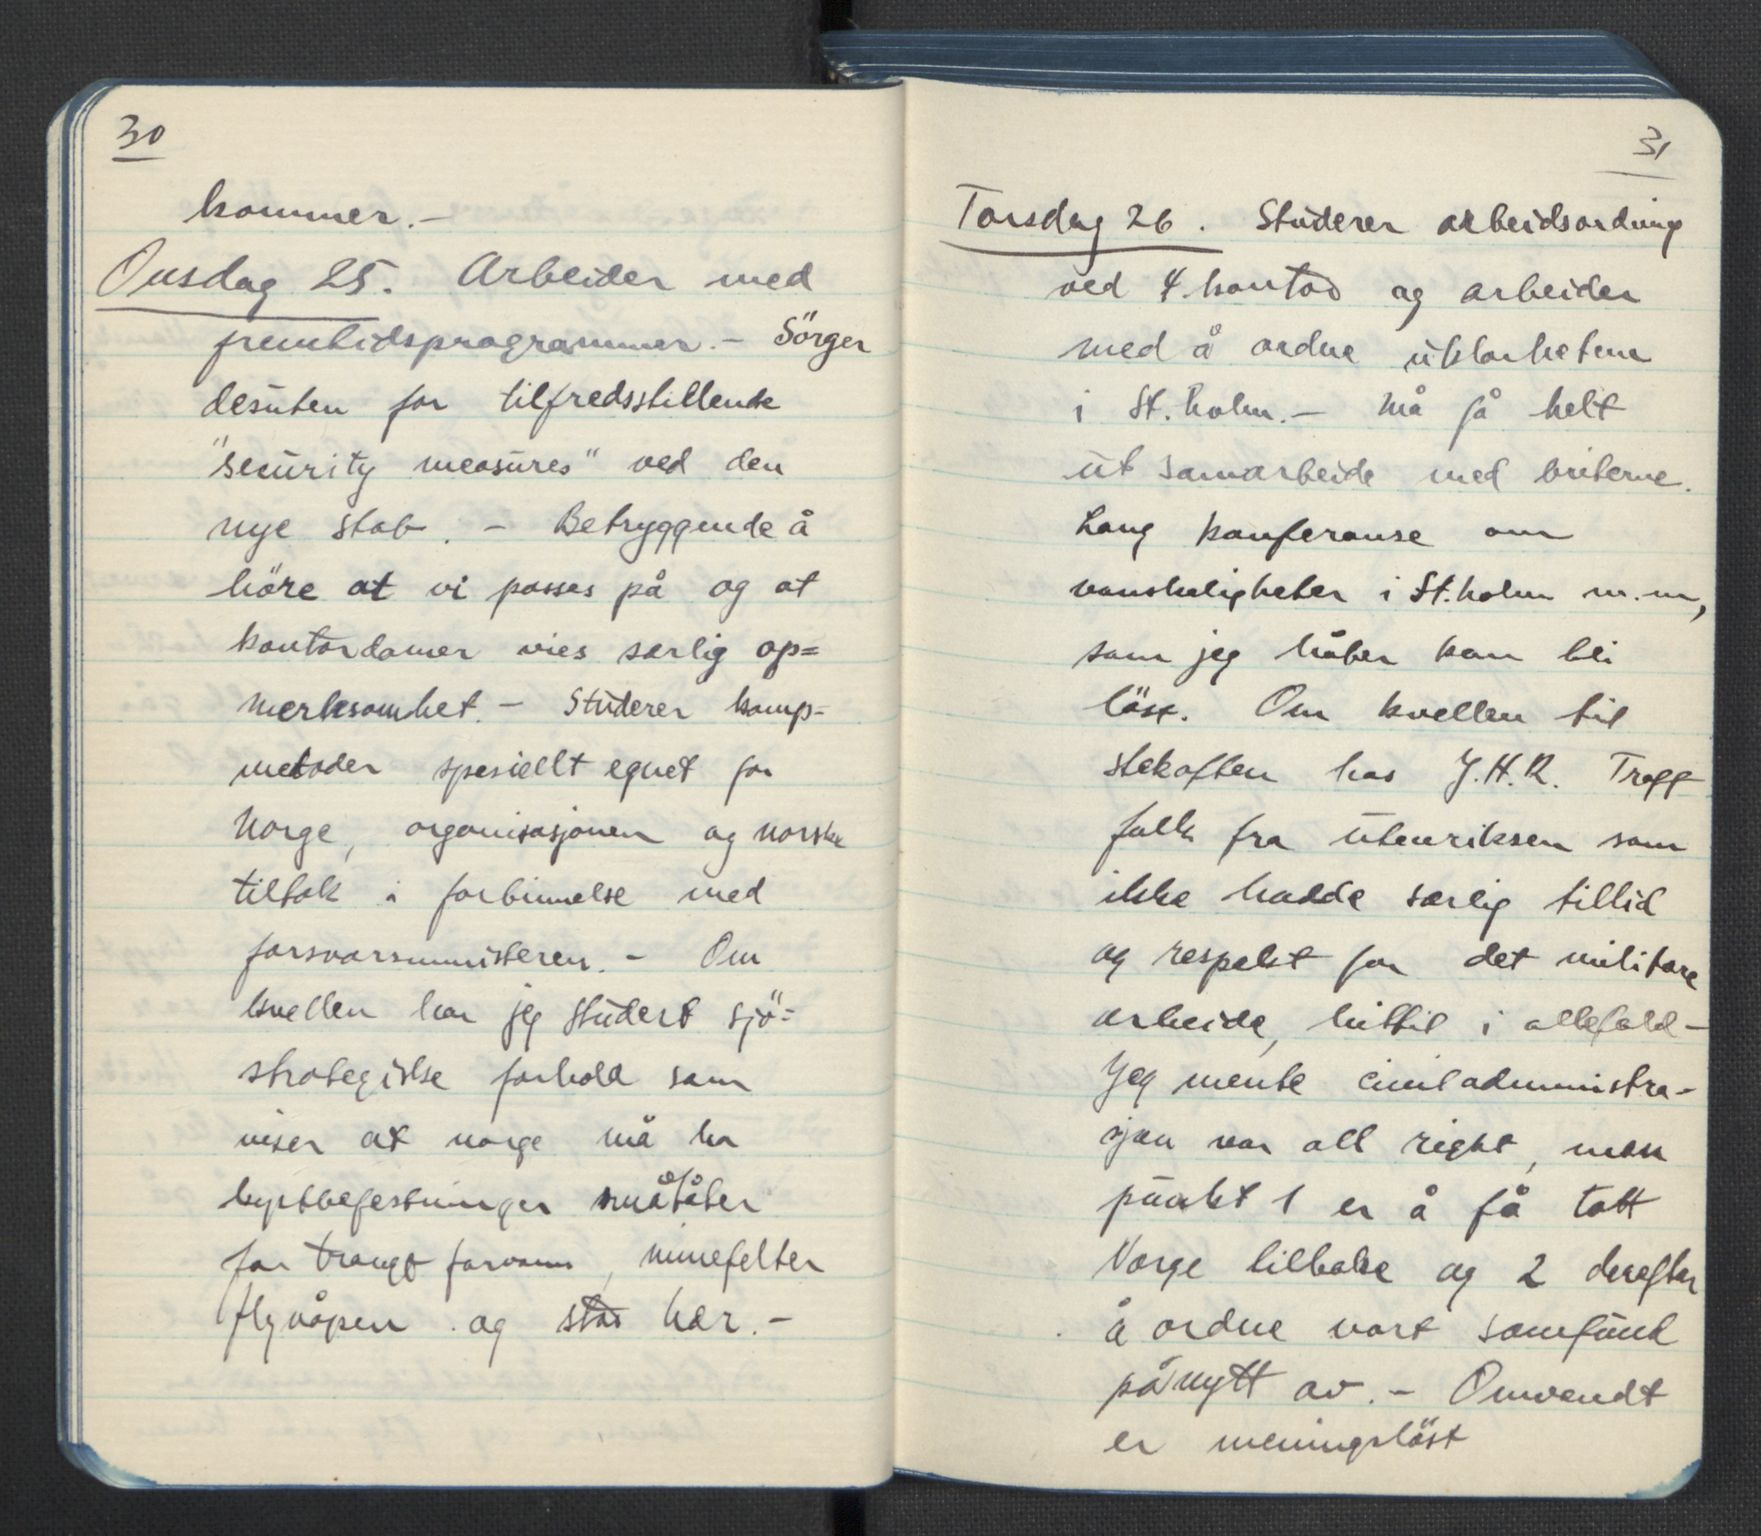 30
kommer. -
Onsdag 25. Arbeider med
fremtidsprogrammer. - Sörger
desuten for tilfredsstillende
"security measures" ved den
nye stab. - Betryggende å
höre at vi passes på og at
kontordamer vies særlig op=
merksomhet. - Studerer kamp-
metoder spesiellt egnet for
Norge, organisasjonen og norske
tiltak i forbinnelse med
forsvarsministeren. - Om
kvellen har jeg studert sjö=
strategiske forhold som
viser at norge må ha
kystbefestninger småbåter
for trangt farvann, minefelter
flyvåpen og stor hær. -
31
Torsdag 26. Studerer arbeidsordning
ved 4. kontor og arbeider
med å ordne uklarhetene
i St.holm. - Må få helt
ut samarbeide med briterne.
Lang konferanse om
vanskeligheter i St.holm m.m,
som jeg håber kan bli
löst. Om kvellen til
stekaften hos J.H.R. Traff
folk fra utenriksen som
ikke hadde særlig tillid
og respekt for det militære
arbeide, hittil i allefald -
Jeg mente civiladministra-
sjon var all right, men
punkt 1 er å få tatt
Norge tilbake og 2 derefter
å ordne vort samfund
på nytt av. - Omvendt
er meningslöst